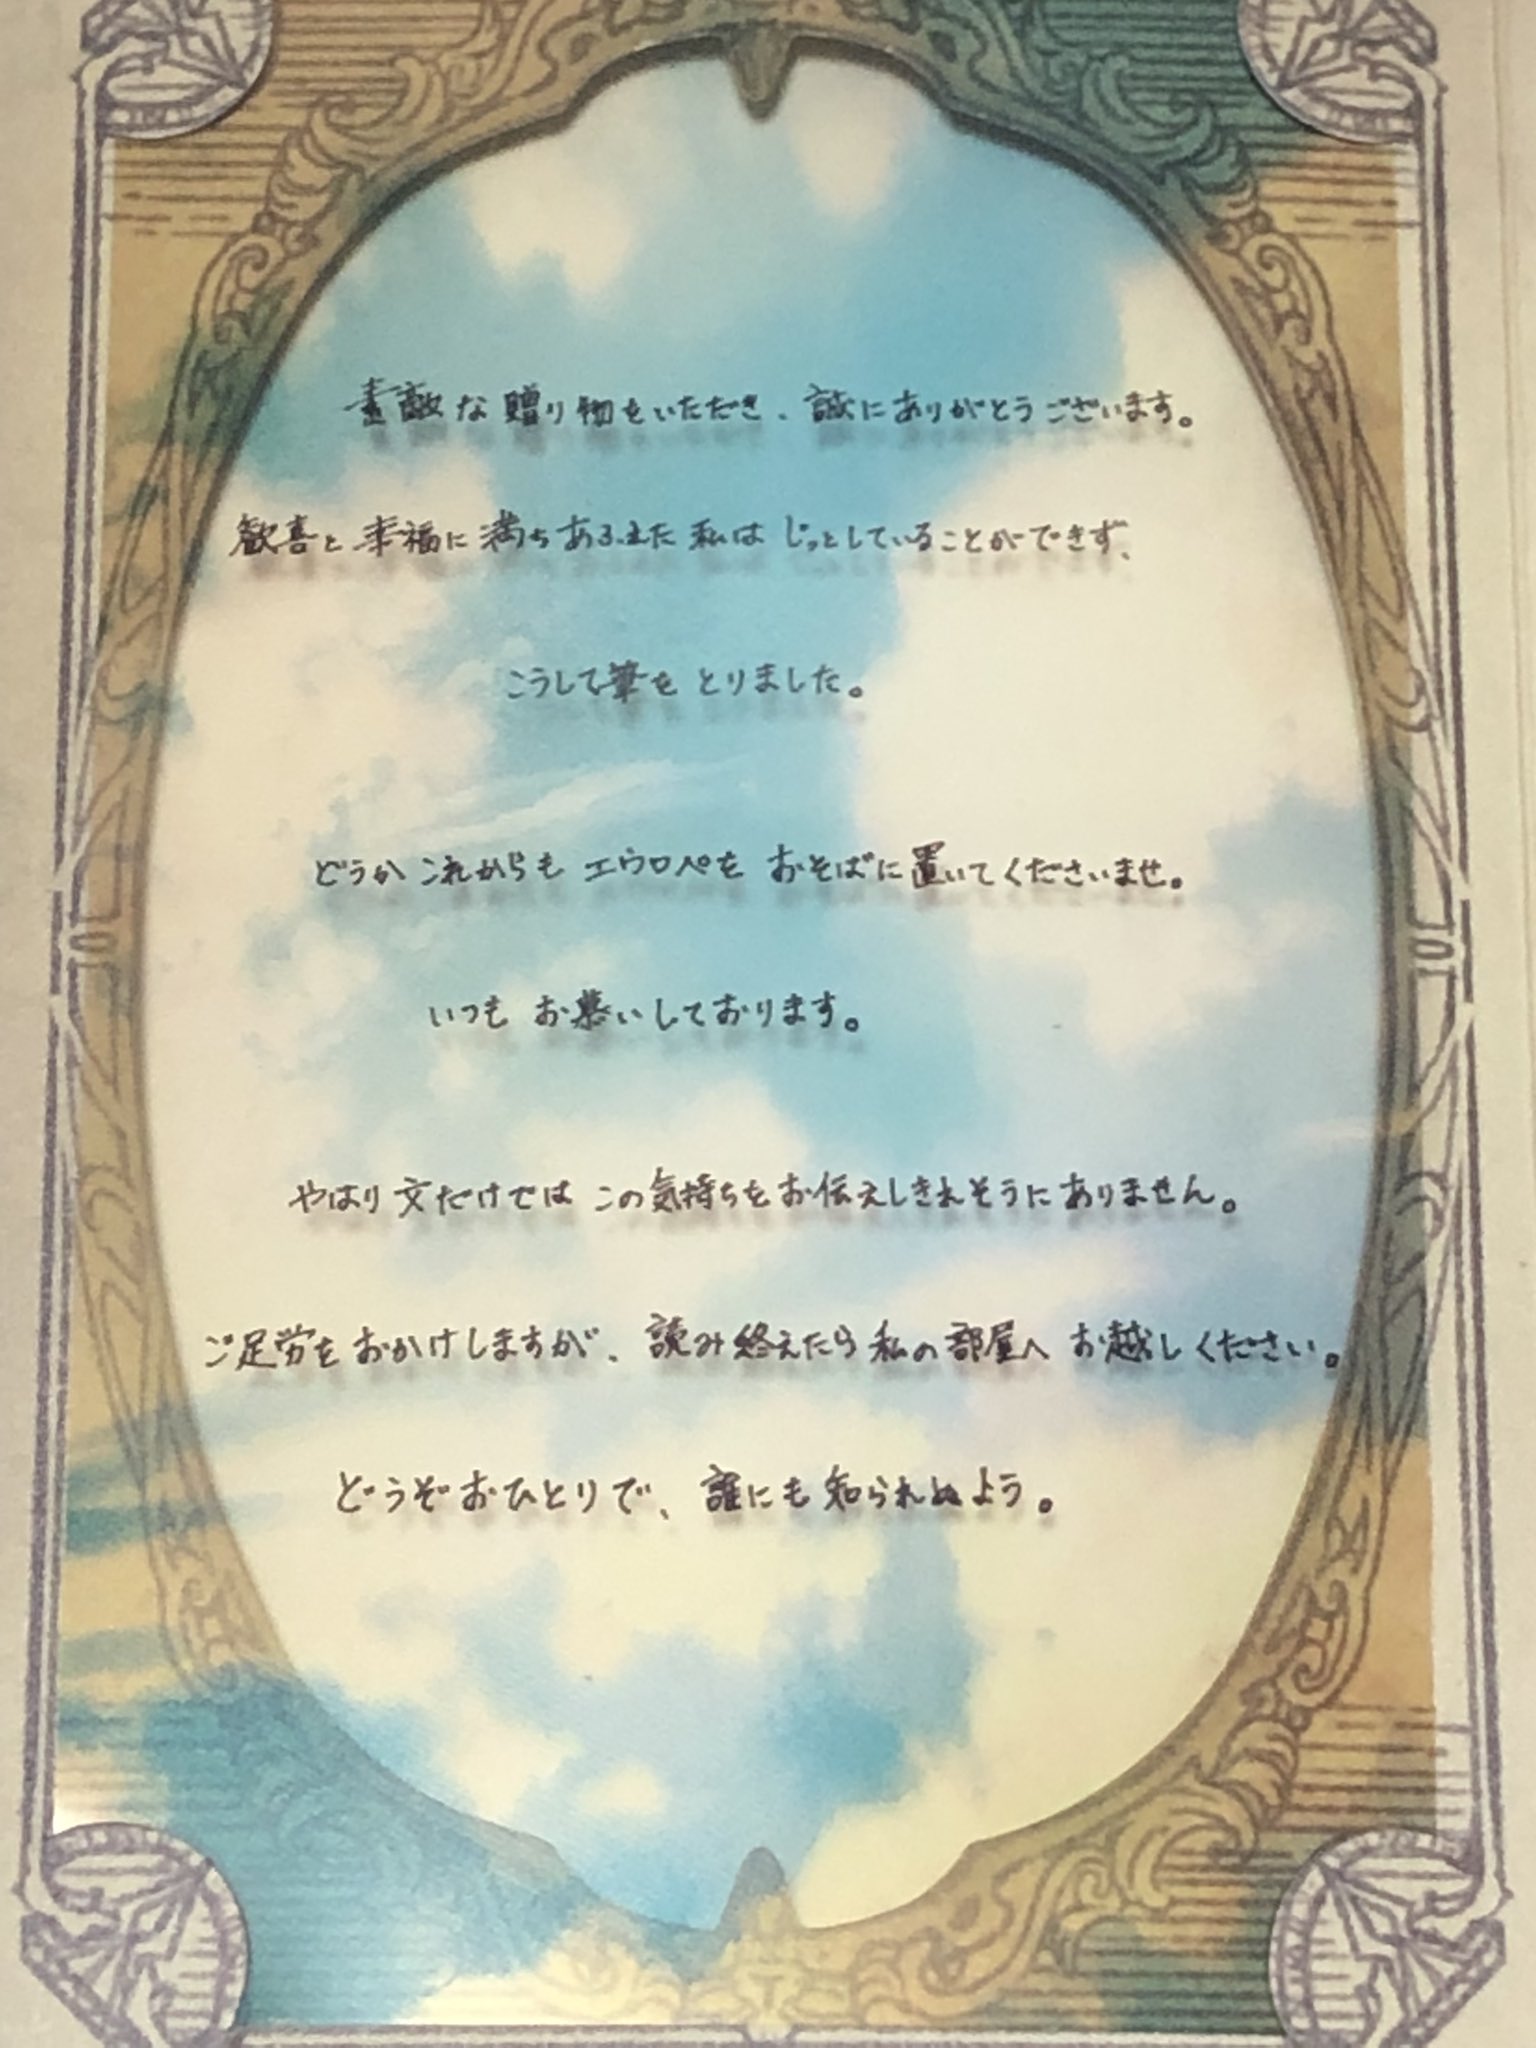 素敵な贈り物をいただき、誠にありがとうございます。
歓喜と幸福に満ちあふれた私はじっとしていることができず、
こうして筆をとりました。
どうかこれからもエウロペをおそばに置いてくださいませ。
いつもお慕いしております。
やはり文だけではこの気持ちをお伝えしきれそうにありません。
ご足労をおかけしますが、読み終えたら私の部屋へお越しください。
どうぞおひとりで、誰にも知られぬよう。